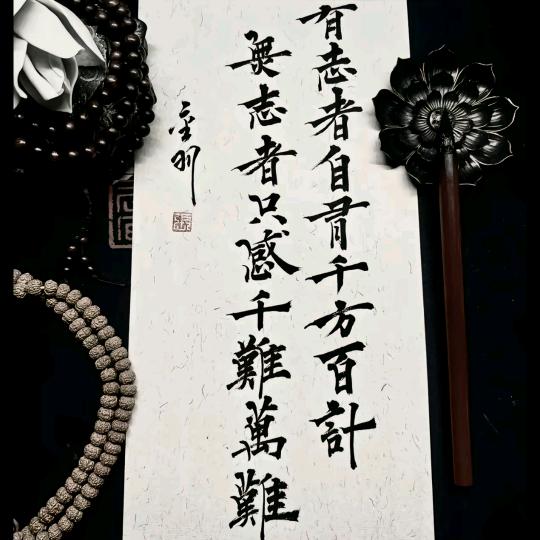 有志者自有千方百計
無志者只感千難萬難